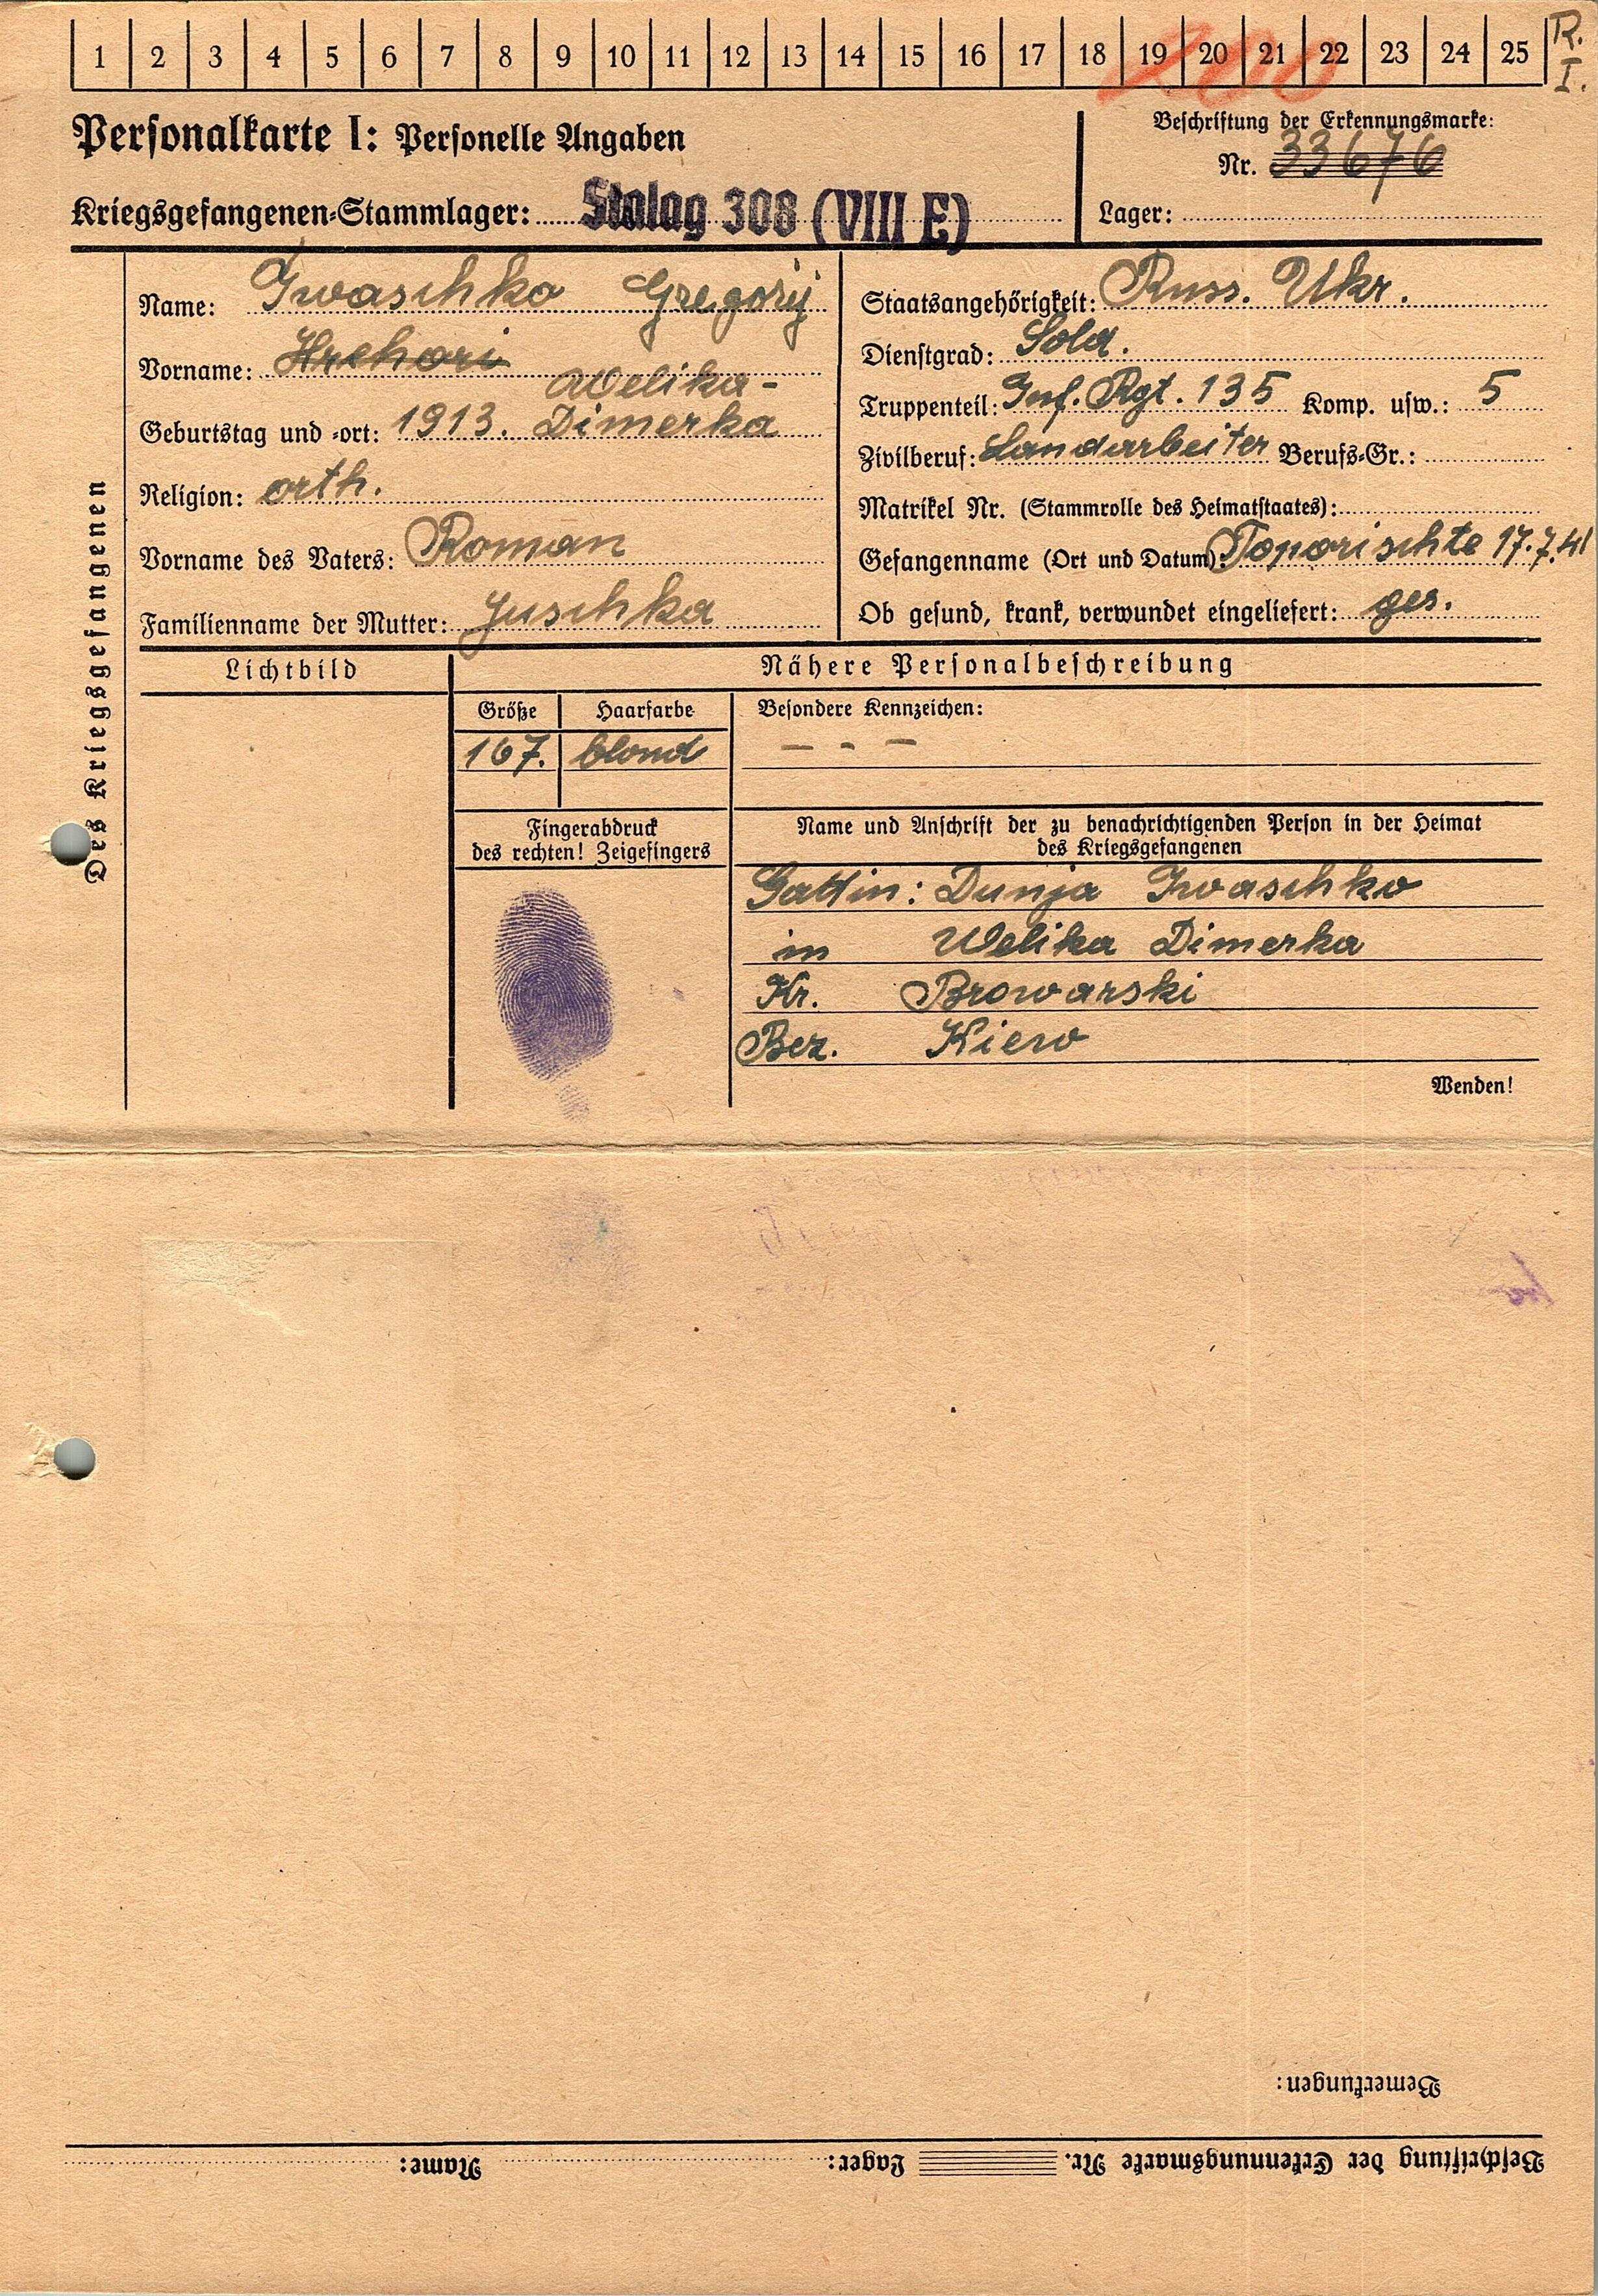 1 2 3 4 5 6 7 8 9 10 11 12 13 14 15 16 17 18 19 20 21 22 23 24 25
R.
I.
200
Personalkarte I: Personelle Angaben
Beschriftung der Erkennungsmarke:
Nr. 33676
Kriegsgefangenen-Stammlager: Stalag 308 (VIII E)
Lager:
Des Kriegsgefangenen
Name: Iwaschko Gregorij
Vorname: Hrehori
Geburtstag und -ort: 1913. Welika-
Dimerka
Religion: orth.
Vorname des Vaters: Roman
Familienname der Mutter: Juschka
Staatsangehörigkeit: Russ. Ukr.
Dienstgrad: Sold.
Truppenteil: Inf. Rgt. 135 Komp. usw.: 5
Zivilberuf: Landarbeiter Berufs-Gr.:
Matrikel Nr. (Stammrolle des Heimatstaates):
Gefangenname (Ort und Datum): Toporischte 17.7.41
Ob gesund, krank, verwundet eingeliefert: ges.
Lichtbild
Nähere Personalbeschreibung
Größe Haarfarbe
167. blond
Besondere Kennzeichen:
– - –
Fingerabdruck
des rechten! Zeigefingers
Name und Anschrift der zu benachrichtigenden Person in der Heimat
des Kriegsgefangenen
Gattin: Dunja Iwaschko
in Welika Dimerka
Kr. Browarski
Bez. Kiew
Wenden!
Bemerkungen:
Beschriftung der Erkennungsmarke Nr. Lager: Name: